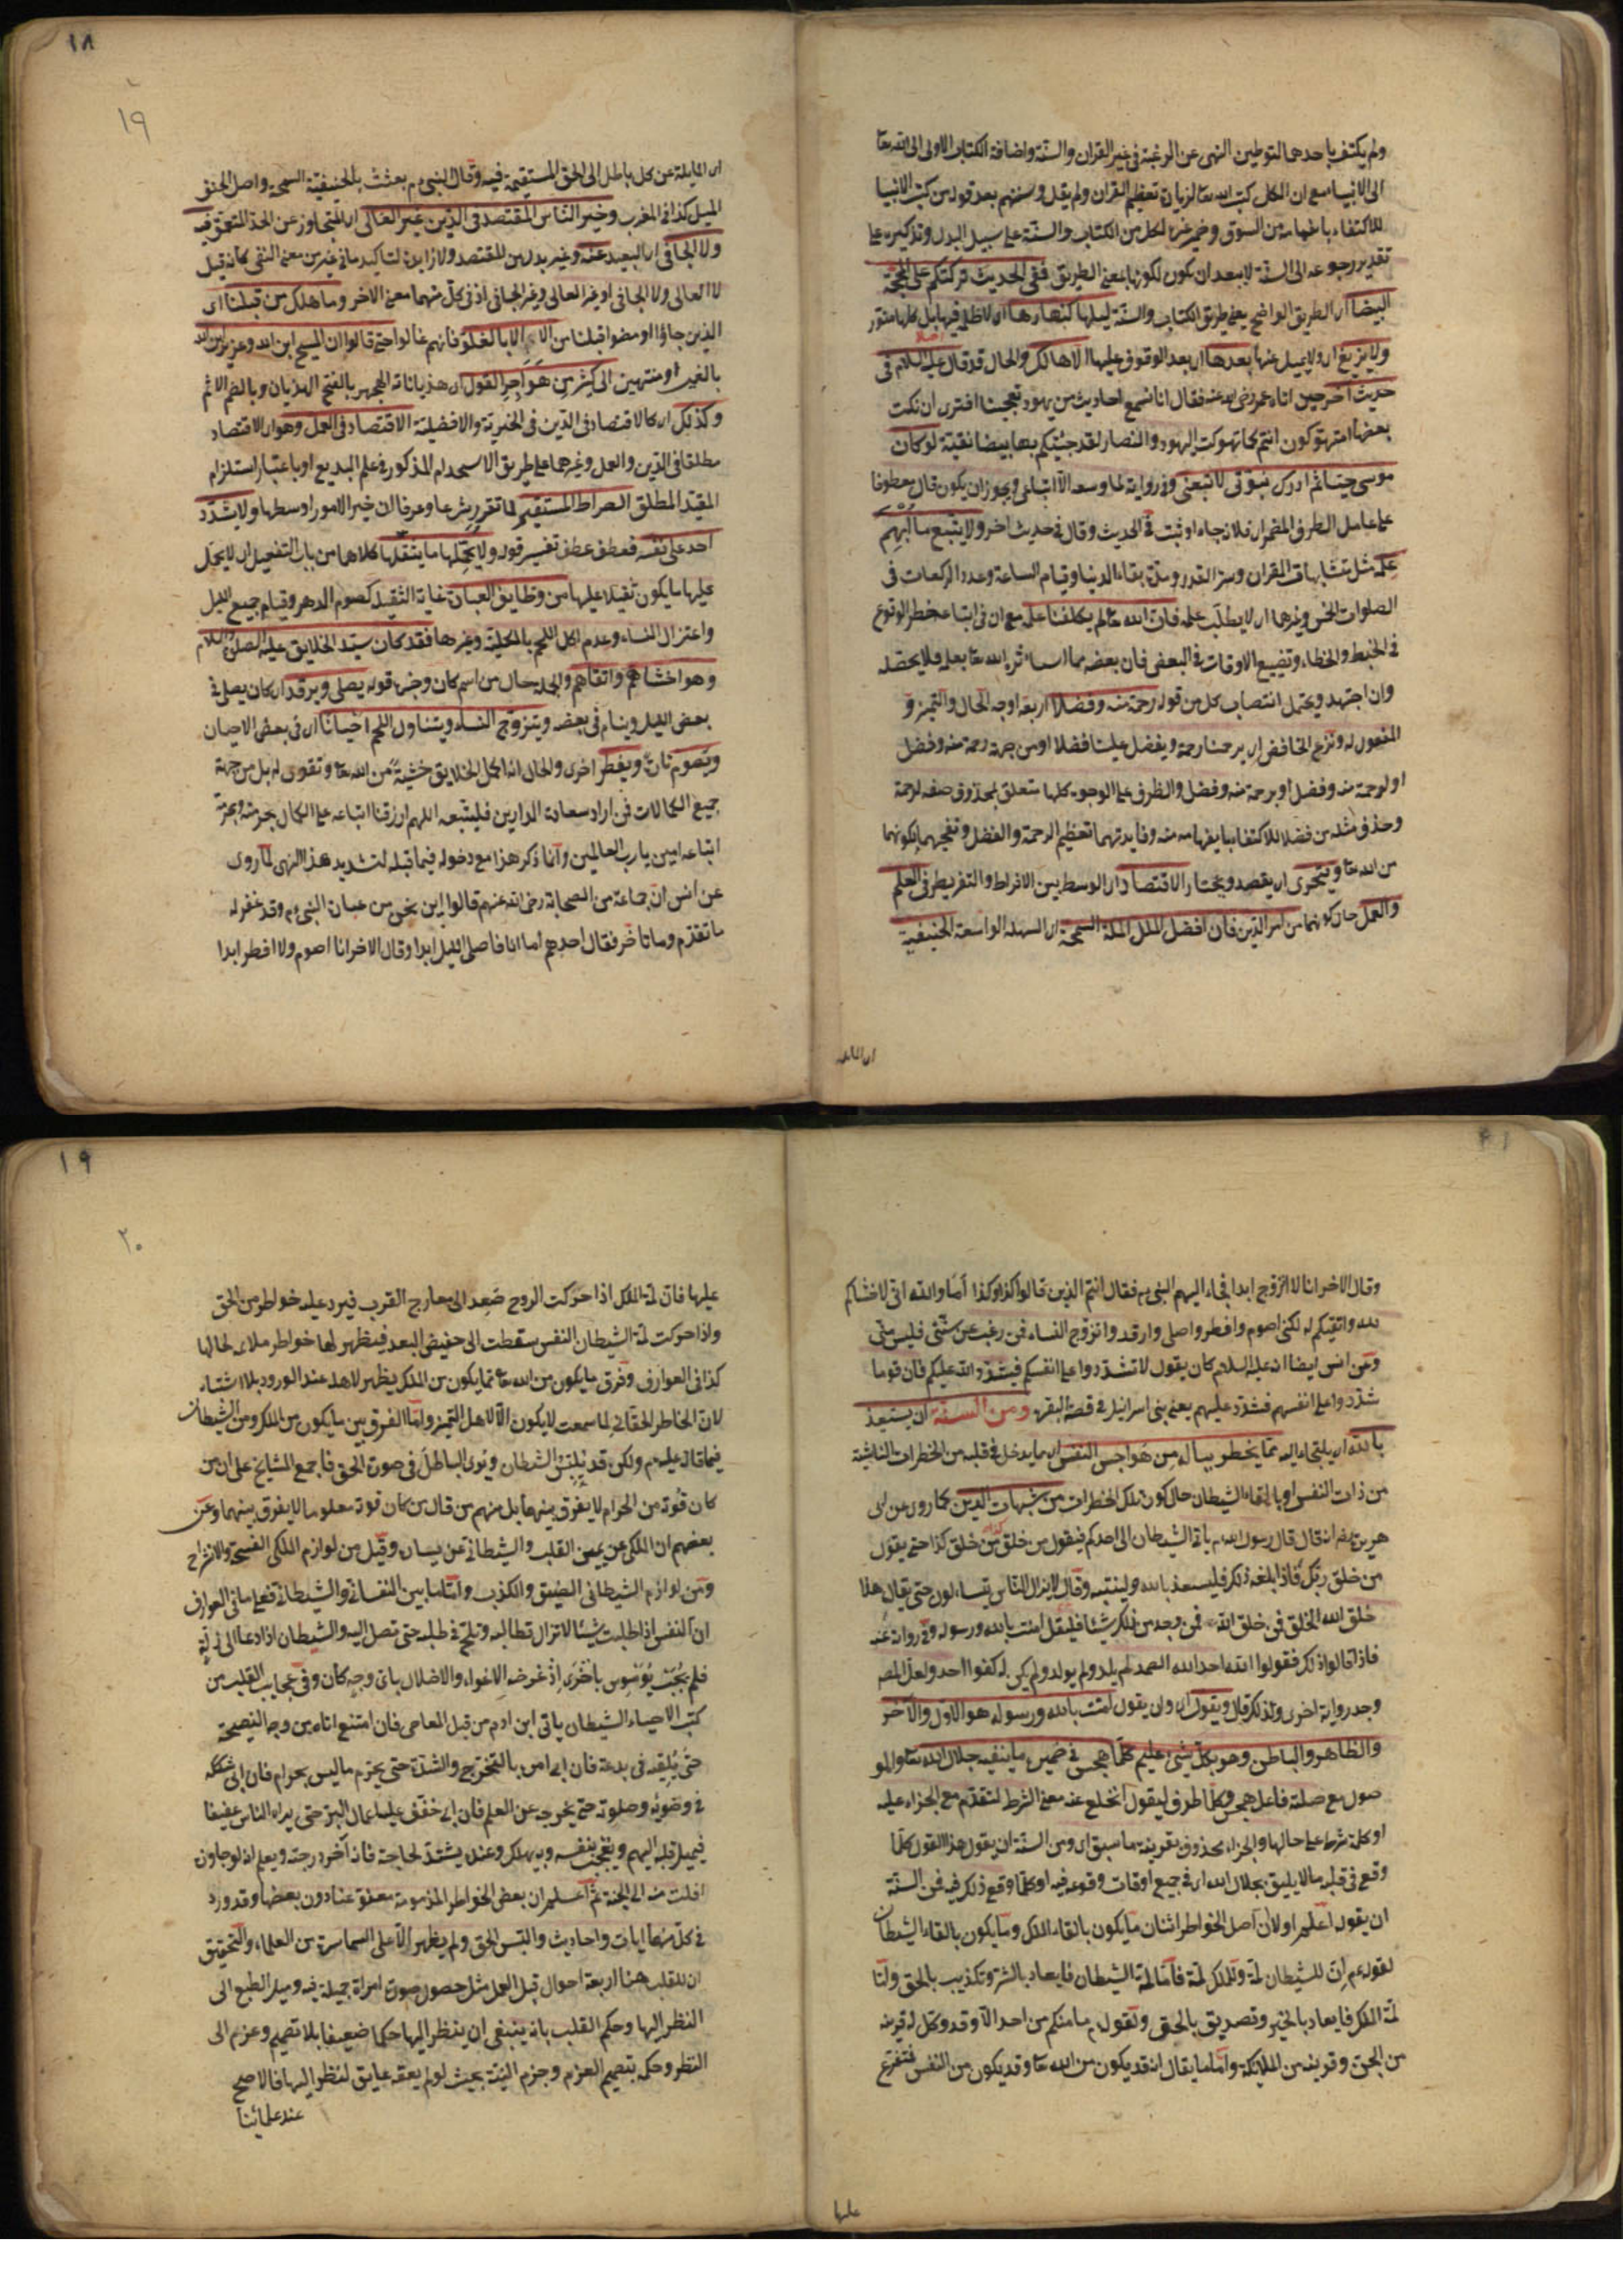 ولم يكتف باحدهما لتوطين النهى عن الرغبة فى غير القران والسنة واضافة الكتاب الاولى الى الله تعا
الى الانبيا مع ان الكل كتب الله تعا لزيادة تعظيم القران ولم يقل وسننهم بعد قوله من كتب الانبيا
للاكتفاء بانفهامه من السوق وضمير غيره لكل من الكتاب والسنة على سبيل البدل وتذكيره على
تقدير رجوعه الى السنة لا يبعد ان يكون لكونها بمعنى الطريق ففى الحديث تركتكم على المحجة
البيضا اى الطريق الواضح يعنى طريق الكتاب والسنة ليلها كنهارها اى لا ظلم فيها بل كلها منور
ولا يزيغ اى ولا يميل عنها بعدها اى بعد الوقوف عليها الا هالك والحال قد قال عليه السلام فى
حديث اخر حين اتاه عمر رضى الله عنه فقال انا نسمع احاديث من يهود تعجبنا افترى ان نكتب
بعضها امتهوكون انتم كما تهوكت اليهود والنصارى لقد جئتكم بها بيضا نقية لو كان
موسى حيا ثم ادرك نبوتى لاتبعنى وفى رواية لما وسعه الا اتباعى ويجوز ان يكون قال معطوفا
على عامل الظرف المضمر اى فلان جاء او ثبت فى الحديث وقال فى حديث اخر ولا يتبع ما ابهم
علمه مثل متشابهات القران وسر القدر ومدة بقاء الدنيا وقيام الساعة وعدد الركعات فى
الصلوات الخمس وغيرها اى لا يطلب علمه فان الله تعا لم يكلفنا علمه مع ان فى اتباعه خطر الوقوع
فى الخبط والخطاء وتضييع الاوقات فى البعض فان بعضه مما استاثر الله تعا بعلمه فلا يحصد
وان اجتهد ويحتمل انتصاب كل من قوله رحمة منه وفضلا اربعة اوجه الحال والتميز و
المفعول له ونزع الخافض اى يرحمنا رحمة ويفضل علينا فضلا او من جهة رحمة منه وفضل
او لرحمة منه وفضل او برحمة منه وفضل والظرف على الوجوه كلها متعلق بمحذوف صفة لرحمة
وحذف مثله من فضلا للاكتفا بانفهامه منه وفايدتهما تعظيم الرحمة والفضل وتفخيمهما بكونهما
من الله تعا ويتحرى اى يقصد ويختار الاقتصاد اى الوسط بين الافراط والتفريط فى العلم
والعمل حال كونهما من امر الدين فان افضل الملل الملة السمحة اى السهلة الواسعة الحنيفية
اى المايلة
١٨
١٩
اى المايلة عن كل باطل الى الحق المستقيمة فيه وقال النبى م بعثت بالحنيفية السمحة واصل الحنف
الميل كذا فى المغرب وخير الناس المقتصد فى الدين غير الغالى اى المتجاوز عن الحد المتعمق فيه
ولا الجافى اى البعيد عنه وغير بدل من المقتصد ولا زايدة لتاكيد ما فى غير من معنى النفى كانه قيل
لا الغالى ولا الجافى او غير الغالى وغير الجافى اذ فى كل منهما معنى الاخر وما هلك من قبلنا اى
الذين جاؤا او مضوا قبلنا من الامم الا بالغلو فانهم غالوا حتى قالوا ان المسيح ابن الله وعزير ابن الله
بالغين او منتهين الى كثير من هواجر القول اى هذياناته الهجر بالفتح الهذيان وبالضم الاثم
وكذلك اى كالاقتصاد فى الدين فى الخيرية والافضلية الاقتصاد فى العمل وهو اى الاقتصاد
مطلقا فى الدين والعمل وغيرهما على طريق الاستخدام المذكور فى علم البديع او باعتبار استلزام
المقيد المطلق الصراط المستقيم لما تقرر شرعا وعرفا ان خير الامور اوسطها ولا يشدد
احد على نفسه فعطف عطف تفسير قوله ولا يحملها ما يثقلها كلاهما من باب التفعيل اى لا يحمل
عليها ما يكون ثقيلا عليها من وظايف العبادة غاية الثقيل كصوم الدهر وقيام جميع الليل
واعتزال النساء وعدم اكل اللحم بالكلية وغيرها فقد كان سيد الخلايق عليه الصلوة والسلام
وهو اخشاهم واتقاهم والجملة حال من اسم كان وخبره قوله يصلى ويرقد اى كان يصلى فى
بعض الليل وينام فى بعضه ويتزوج النساء ويتناول اللحم احيانا اى فى بعض الاحيان
ويصوم تارة ويفطر اخرى والحال انه اكمل الخلايق خشية من الله تعا وتقوى له بل من جهة
جميع الكمالات فمن اراد سعادة الدارين فليتبعه اللهم ارزقنا اتباعه على الكمال بحرمته وبحرمة
اتباعه امين يا رب العالمين وانما ذكر هذا مع دخوله فيما قبله لتشديد هذا النهى لما روى
عن انس ان جماعة من الصحابة رضى الله عنهم قالوا اين نحن من عبادة النبى م وقد غفر له
ما تقدم وما تاخر فقال احدهم اما انا فاصلى الليل ابدا وقال الاخر انا اصوم ولا افطر ابدا
وقال الاخر انا لا اتزوج ابدا فجاء اليهم النبى م فقال انتم الذين قالوا كذا وكذا اما والله انى لاخشاكم
لله واتقيكم له لكنى اصوم وافطر واصلى وارقد واتزوج النساء فمن رغب عن سنتى فليس منى
وعن انس ايضا انه عليه السلام كان يقول لا تشددوا على انفسكم فيشدد الله عليكم فان قوما
شددوا على انفسهم فشدد عليهم يعنى بنى اسرائيل فى قصة البقرة ومن السنة ان يستعيذ
بالله اى يلتجى اليه مما يخطر بباله من هواجس النفس اى ما يدخل فى قلبه من الخطرات الناشية
من ذات النفس او بالقاء الشيطان حال كون تلك الخطرات من شبهات الدين كما روى عن ابى
هريرة رض انه قال قال رسول الله م ياتى الشيطان الى احدكم فيقول من خلق كذا من خلق كذا حتى يقول
من خلق ربك فاذا بلغه ذلك فليستعذ بالله ولينتبه وقال لا يزال الناس يتساءلون حتى يقال هذا
خلق الله الخلق فمن خلق الله فمن وجد من ذلك شيئا فليقل امنت بالله ورسوله وفى رواية عنه
فاذا قالوا ذلك فقولوا الله احد الله الصمد لم يلد ولم يولد ولم يكن له كفوا احد ولعل المص
وجد رواية اخرى ولذلك قال ويقول اى وان يقول امنت بالله ورسوله هو الاول والآخر
والظاهر والباطن وهو بكل شئ عليم كلما هجس فى ضميره ما ينفيه جلال الله تعا والمو
صول مع صلته فاعل هجس وكلما ظرف ليقول انخلع عنه معنى الشرط لتقدم مع الجزاء عليه
او كلمة شرط على حالها والجزاء محذوف بقرينة ما سبق اى ومن السنة ان يقول هذا القول كلما
وقع فى قلبه ما لا يليق بجلال الله اى فى جميع اوقات وقوعه فيه او كلما وقع ذلك فيه فمن السنة
ان يقوله اعلم اولا ان اصل الخواطر اثنان ما يكون بالقاء الملك وما يكون بالقاء الشيطان
لقوله م ان للشيطان لمة وللملك لمة فاما لمة الشيطان فايعاد بالشر وتكذيب بالحق واما
لمة الملك فايعاد بالخير وتصديق بالحق ولقوله م ما منكم من احد الا وقد وكل له قرينه
من الجن وقرينه من الملائكة واما ما يقال انه قد يكون من الله تعا وقد يكون من النفس فتفرع
عليها
١٩
٢٠
عليها فان لمة الملك اذا حركت الروح صعد الى معارج القرب فيرد عليه خواطر من الحق
واذا حركت لمة الشيطان النفس سقطت الى حضيض البعد فيظهر لها خواطر ملائمة لحالها
كذا فى العوارف وفرق ما يكون من الله تعا مما يكون من الملك يظهر لاهله عند الورود بلا اشتباه
لان الخاطر الحقانى لما سمعت لا يكون الا لاهل التميز واما الفرق بين ما يكون من الملك ومن الشيطان
فيما قاله عليه م ولكن قد يلبس الشطان ويرى الباطل فى صورة الحق فاجمع المشايخ على ان من
كان قوته من الحرام لا يفرق بينهما بل منهم من قال من كان قوته معلوما لا يفرق بينهما وعن
بعضهم ان الملكى عن يمين القلب والشيطانى عن يساره وقيل من لوازم الملكى الفسحة والانشراح
ومن لوازم الشيطانى الضيق والكذب واما ما بين النفسانى والشيطانى فعلى ما فى العوارف
ان النفس اذا طلبت شيئا لا تزال تطالبه وتلح فى طلبه حتى تصل اليه والشيطان اذا دعا الى زلة
فلم يجب يوسوس باخرى اذ غرضه الاغواء والاضلال باى وجه كان وفى عجايب القلب من
كتب الاحياء الشيطان ياتى ابن ادم من قبل المعاصى فان امتنع اتاه من وجه النصيحة
حتى يلقيه فى بدعة فان ابى امره بالتحرج والشدة حتى يحرم ما ليس بحرام فان ابى شككه
فى وضوئه وصلوته حتى يخرجه عن العلم فان ابى خفف عليه اعمال البر حتى يراه الناس عفيفا
فيميل قلبه اليهم ويعجب بنفسه وبه يهلك وعنده يشتد لحاجة فانه آخر درجته ويعلم انه لو جاوزه
افلت منه الى الجنة ثم اعلم ان بعض الخواطر المذمومة معفو عنا دون بعضها وقد ورد
فى كل منهما ايات واحاديث والتبس الحق ولم يظهر الا على السماسرة من العلماء والتحقيق
ان للقلب هنا اربعة احوال قبل العمل مثل حصول صورة امراة جميلة فيه وميل الطبع الى
النظر اليها وحكم القلب بانه ينبغى ان ينظر اليها حكما ضعيفا بلا تصميم وعزم الى
النظر وحكمه بتصميم العزم وجزم النية بحيث لو لم يعقه عايق لنظر اليها فالاصح
عند علمائنا